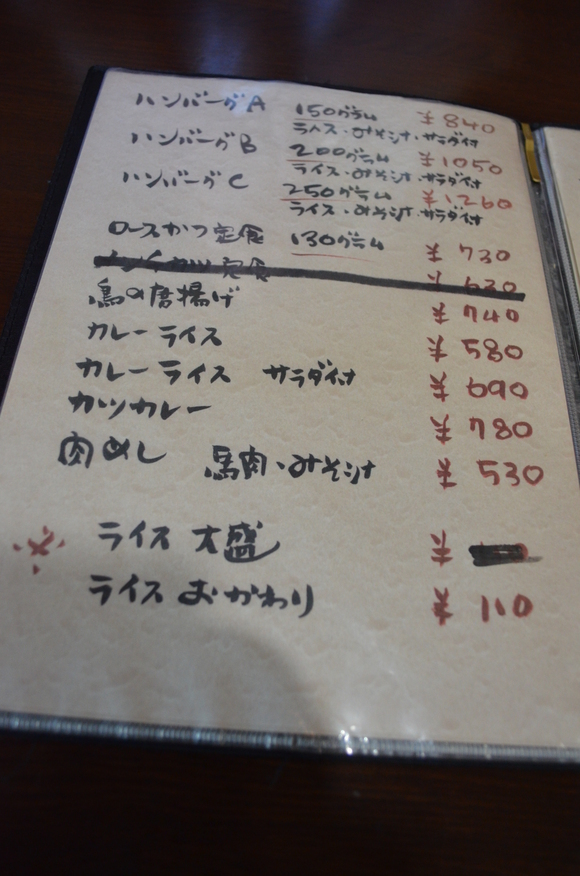 ハンバーグA 150グラム ¥840
ライス・みそ汁・サラダ付
ハンバーグB 200グラム ¥1050
ライス・みそ汁・サラダ付
ハンバーグC 250グラム ¥1,260
ライス・みそ汁・サラダ付
ロースかつ定食 130グラム ¥730
定食 ¥630
鳥の唐揚げ ¥740
カレーライス ¥580
カレーライス サラダ付 ¥690
カツカレー ¥780
肉めし 馬肉・みそ汁 ¥530
※ ライス 大盛 ¥
ライス おかわり ¥110